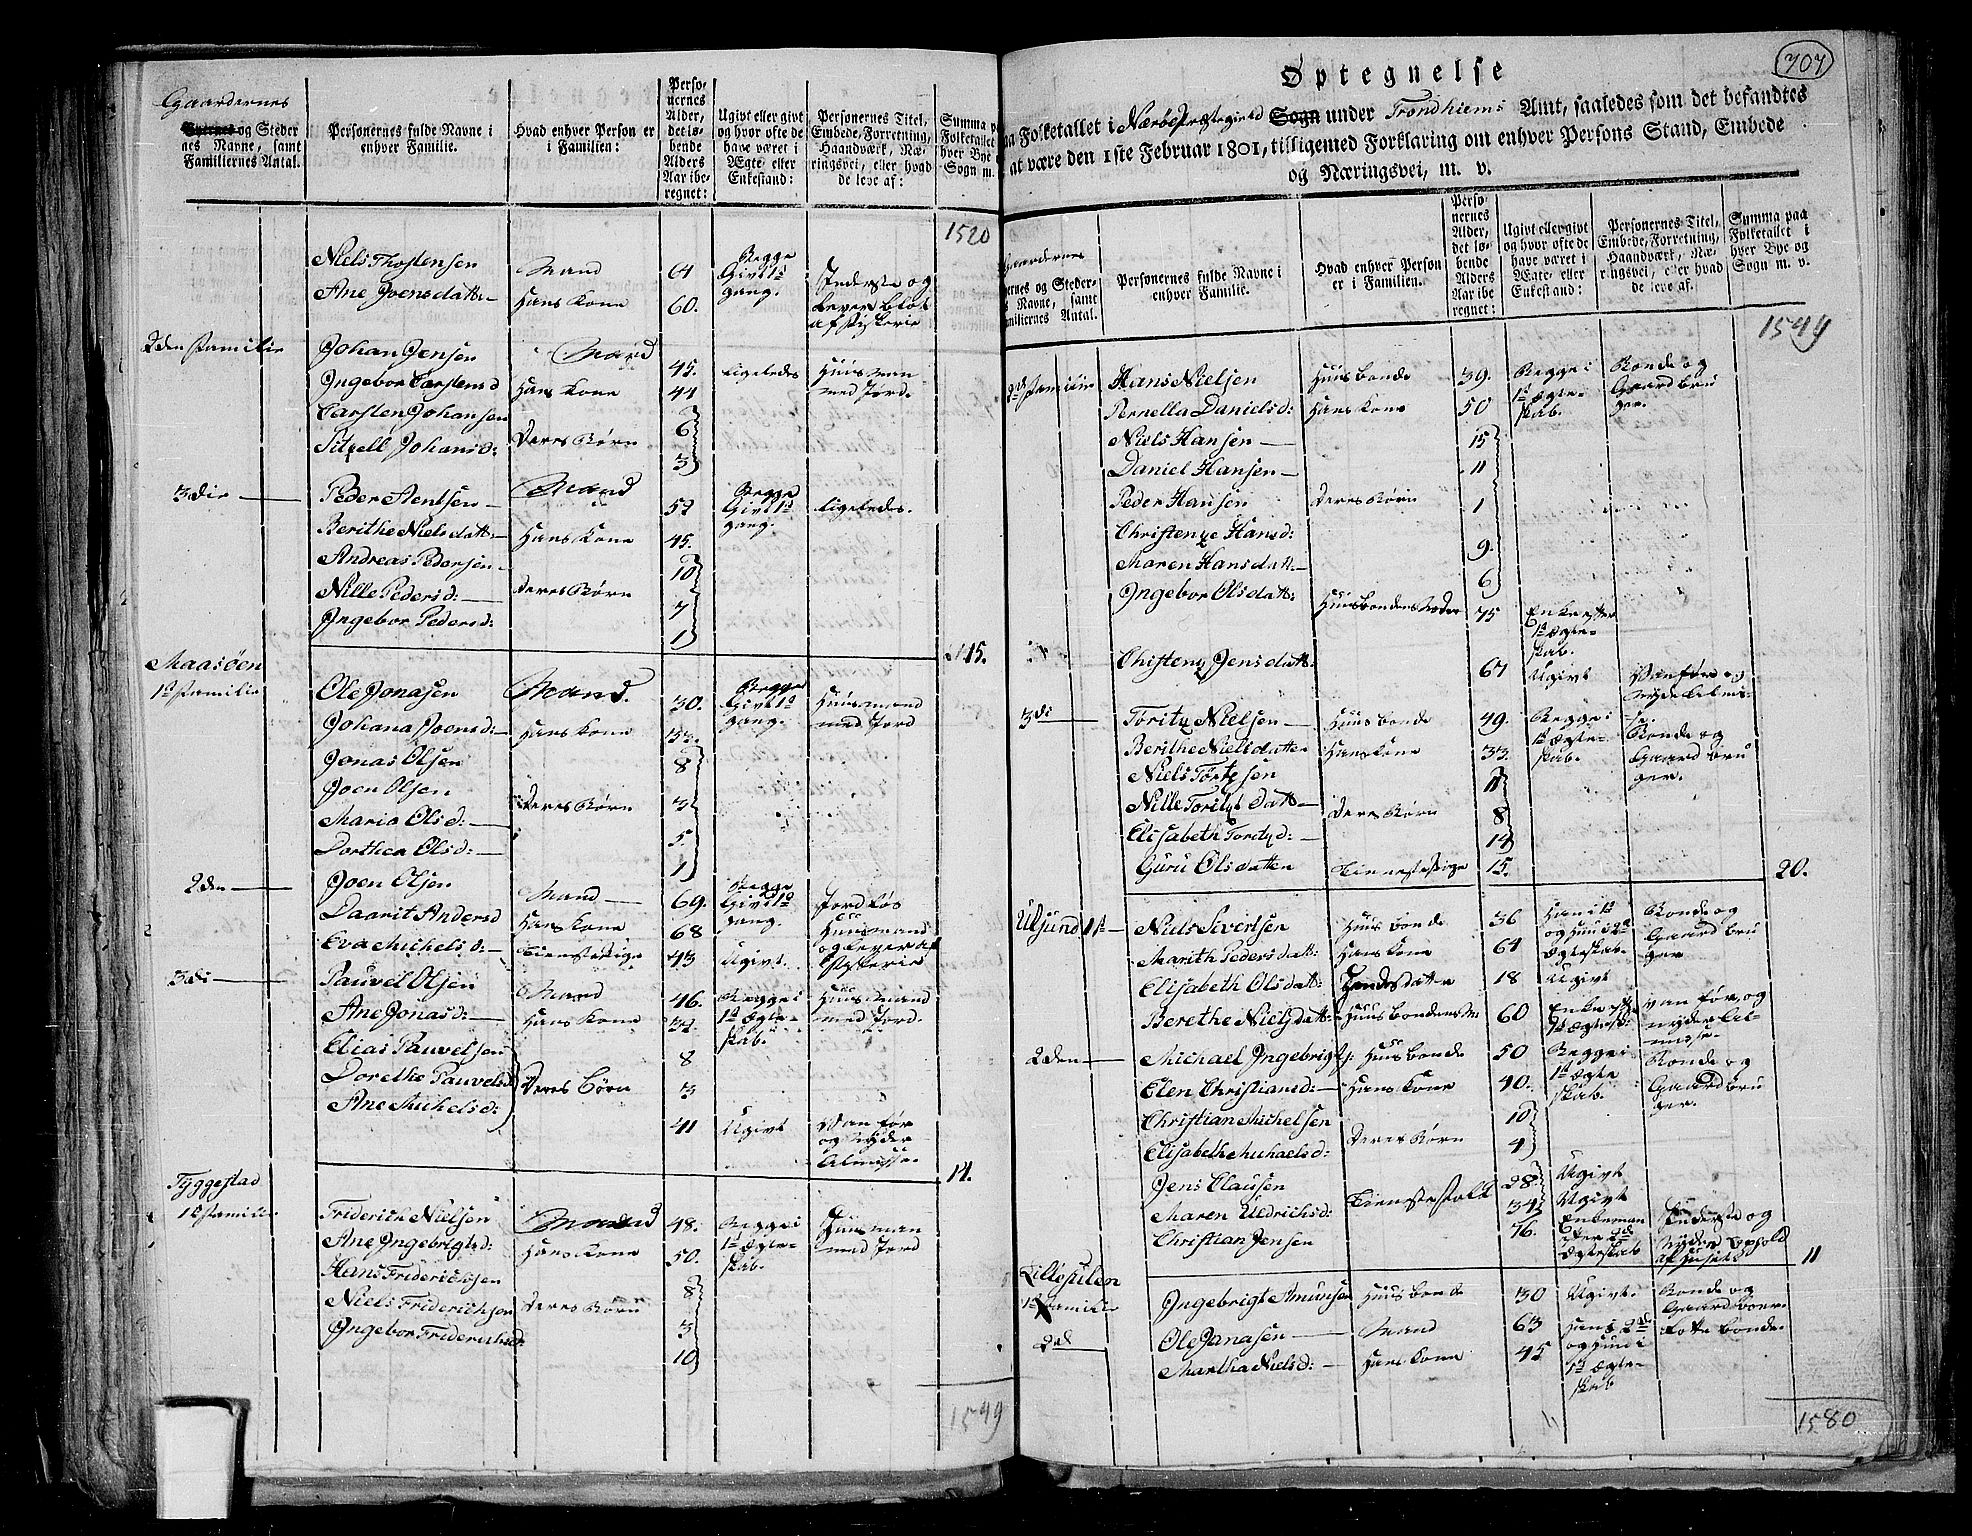 Gaardernes
Byernes og Steder
nes Navne, samt
Familiernes Antal.
Personernes fulde Navne i
enhver Familie.
Hvad enhver Person er
i Familien:
Perso-
nernes
Alder,
det lø-
bende
Alders
Aar ibe-
regnet:
Ugivt eller givt
og hvor ofte de
have været i
Ægte- eller
Enkestand:
Personernes Titel,
Embede, Forretning,
Haandværk, Næ-
ringsvei, eller hvad
de leve af:
Summa paa
Folketallet i
hver Bye og
Sogn m.
1520
Niels Thostensen Mand 64 Begge Givt 1ste gang. Inderste og
Ane Joensdatt:- Hans Kone 60. lever blot af fiskerie
2den Familie Johan Jensen Mand 45. ligeledes Huusman
Ingebor Carstensd Hans Kone 44 med Jord.
Carsten Johansen 6
Sitzell Johansd: Deres Børn 3
3die Peder Aentsen Mand 52 Begge Givt 1ste gang. ligeledes.
Berithe Nielsdatt:- Hans Kone 45.
Andreas Pedersen 10
Nille Pedersd: Deres Børn 7
Ingebor Pedersd: 1
15.
Maasøen
1ste Familie Ole Jonasen Mand. 30. Begge Givt 1ste gang. Huusmand
Johana Joensd:- Hans Kone 33. med Jord
Jonas Olsen 8
Joen Olsen Deres Børn 3
Maria Olsd: 5.
Dorthea Olsd: 1
2den Joen Olsen Mand 69. Begge Givt 1ste gang. Jordløs
Daarit Andersd Hans Kone 68 Huusmand
Eva Michelsd:- Tienestepige 43 Ugivt. og lever af fiskerie
3di Pauvel Olsen Mand 46. Begge i Huusmand
Ane Jonasd: Hans Kone 34. 1ste Ægte- skab. med Jord.
Elias Pauvelsen 8
Dorethe Pauvelsd Deres Børn 3
Ane Michelsd: 41 Ugivt Vanfør og nyder Almisse.
14.
Tyggestad
1ste Familie Friderich Nielsen Mand 48. Begge i Huusman
Ane Ingebrigtsd: Hans Kone 50. 1ste Ægte- skab. med Jord
Hans Friderichsen 8
Niels Friderichsen Deres Børn 3
Ingebor Friderichsd: 10
1549
707
Optegnelse
paa Folketallet i Nærøe Præstegield Sogn under Trondhiems Amt, saaledes som det befandtes
at være den 1ste Februar 1801, tilligemed Forklaring om enhver Persons Stand, Embede
og Næringsvei, m. v.
Gaardernes
Byernes og Steder-
nes Navne, samt
Familiernes Antal.
Personernes fulde Navne i
enhver Familie.
Hvad enhver Person
er i Familien.
Perso-
nernes
Alder,
det lø-
bende
Alders
Aar ibe-
regnet:
Ugivt eller givt
og hvor ofte de
have været i
Ægte- eller
Enkestand:
Personernes Titel,
Embede, Forretning,
Haandværk, Næ-
ringsvei, eller hvad
de leve af.
Summa paa
Folketallet i
hver Bye og
Sogn m. v.
1549
2d Familie Hans Nielsen Huusbonde 39. Begge i Bonde og
Pernella Danielsd: Hans Kone 50 1ste Ægte- skab. Gaardbruger.
Niels Hansen 15
Daniel Hansen 11
Peder Hansen Deres Børn 1
Christenze Hansd: 9.
Maren Hansdatt:- 6
Ingebor Olsdatt: Huusbondens Moder 75 Enke efter 1ste Ægte- skab.
Christenz Jensdatt: 67 Ugivt Vanfør og nyder Almisse.
3di Toritz Nielsen Huusbonde 49. Begge i Bonde og
Berithe Nielsdatter Hans Kone 33. 1ste Ægte- skab. Gaardbruger.
Niels Toritzsen 11
Nille Toritzdatt- Deres Børn 8
Elisabeth Toritzd: 14
Guru Olsdatten Tienestepige 15.
20.
Ulsund 1ste Niels Sivertsen Huusbonde 36 Han i 1ste Bonde og
Marith Pedersdatt: Hans Kone 64 og Hun i 2det Ægteskab. Gaardbruger
Elisabeth Olsdatt: Hendes datter 18 Ugivt
Berethe Nielsdatt: Huusbondens M: 60 Enke efter 1ste Ægtesk: Vanfør, og nyder Almisse.
2den Michael Ingebrigts: Huusbonde 50 Begge i Bonde og
Elen Christiansd: Hans Kone 40. 1ste Ægteskab. Gaardbruger.
Christian Michelsen 10
Elisabeth Michaelsd: Deres Børn 4
Jens Clausen 28 Ugivt
Maren Uldrichsd: Tienestefolk 34 Ugivt
Christian Jensen 76. Enkeman efter 2det Ægteskab Inderste og nyder Ophold af Huset
11
Lillesulen
1ste Familie Ingebrigt Amunsen Huusbonde 30 Ugivt: Bonde og Gaardboer.
2de Ole Janasen Mand 63 Han i 2det
Martha Nielsd: Hans Kone 45 og Hun i 1ste Ægte- skab
1580